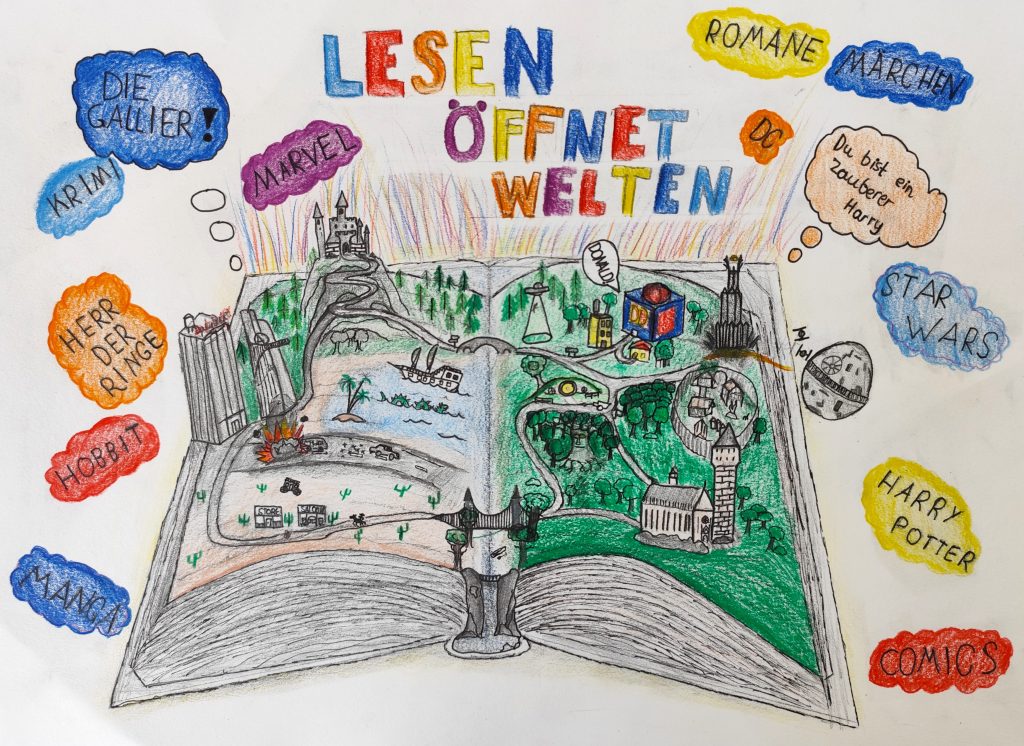 LESEN
ÖFFNET
WELTEN
ROMANE
MÄRCHEN
DIE
GALLIER!
KRIMI
MARVEL
DC
Du bist ein
Zauberer
Harry
DONALD!
HERR
DER
RINGE
STAR
WARS
HOBBIT
HARRY
POTTER
STORE
MANGA
COMICS